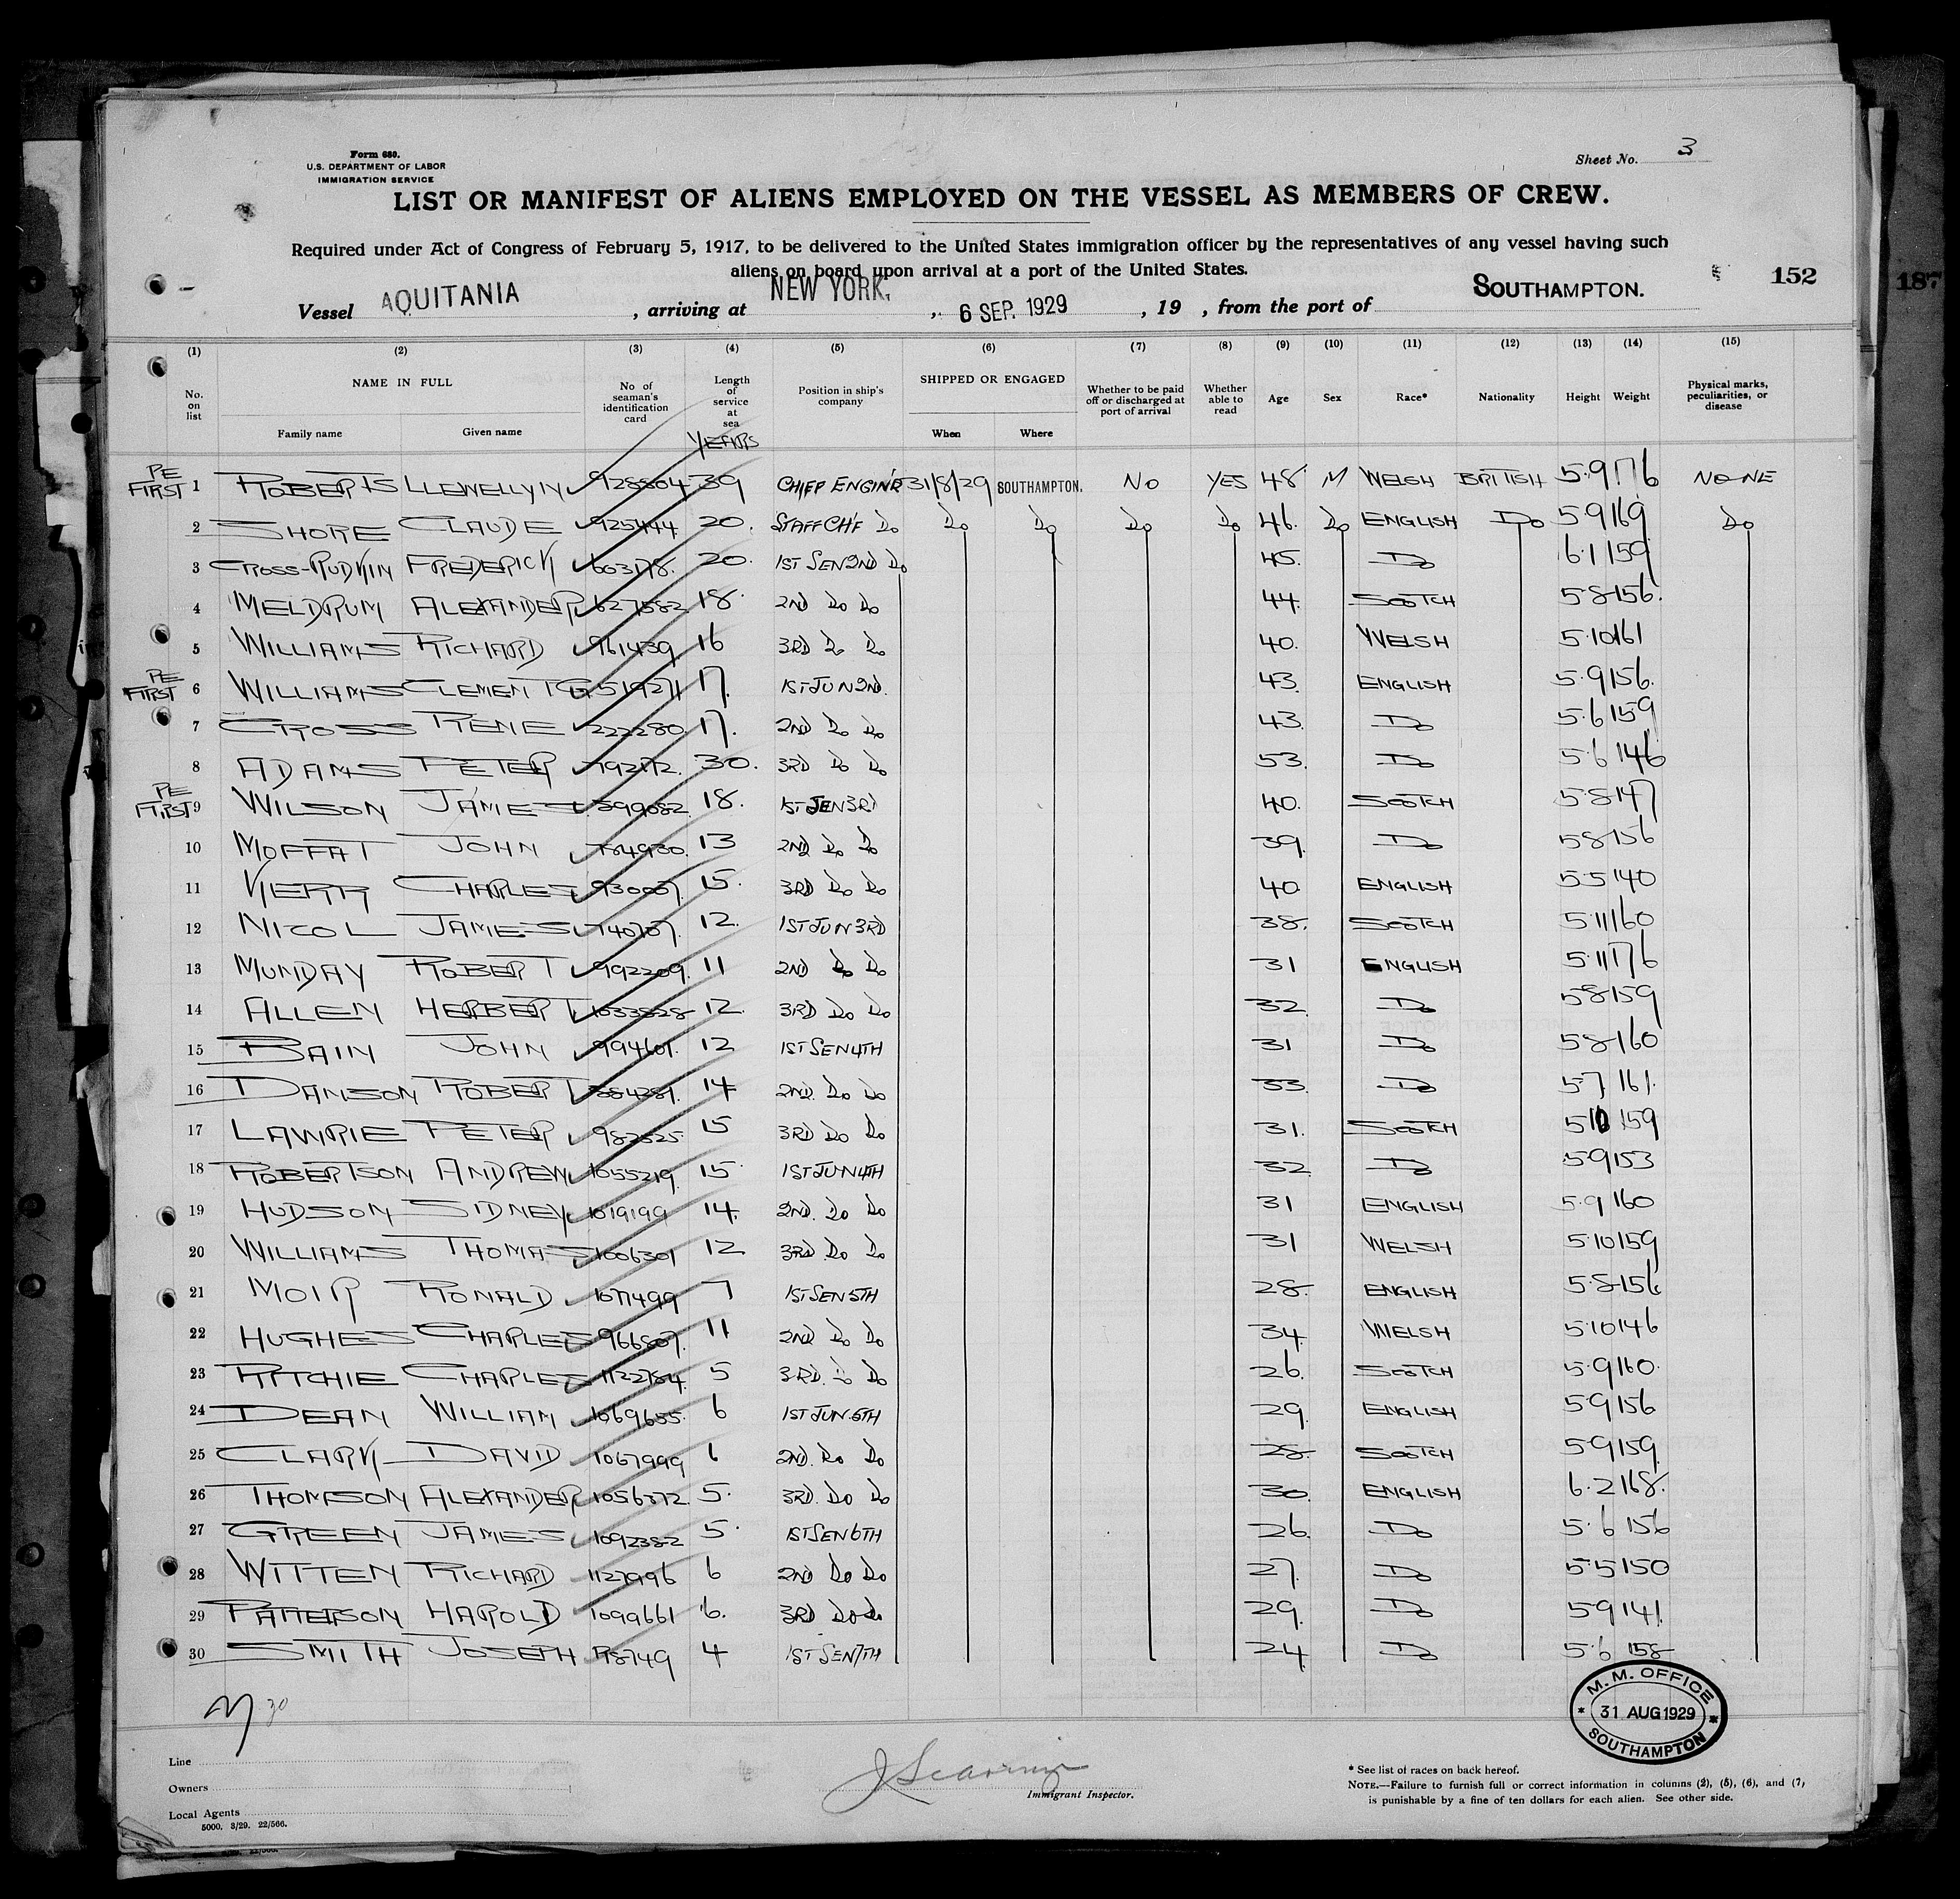 Form 680.
U.S. DEPARTMENT OF LABOR
IMMIGRATION SERVICE
Sheet No. 3
LIST OR MANIFEST OF ALIENS EMPLOYED ON THE VESSEL AS MEMBERS OF CREW.
Required under Act of Congress of February 5, 1917, to be delivered to the United States immigration officer by the representatives of any vessel having such
aliens on board upon arrival at a port of the United States.
152
187
Vessel AQUITANIA, arriving at NEW YORK, 6 SEP. 1929, 19 , from the port of SOUTHAMPTON.
(1) (2) (3) (4) (5) (6) (7) (8) (9) (10) (11) (12) (13) (14) (15)
No. on list NAME IN FULL Family name Given name No. of seaman's identification card Length of service at sea YEARS Position in ship's company SHIPPED OR ENGAGED When Where Whether to be paid off or discharged at port of arrival Whether able to read Age Sex Race* Nationality Height Weight Physical marks, peculiarities, or disease
PE FIRST 1 ROBERTS LLEWELLYN 928504 39 CHIEF ENGIN'R 31/8/29 SOUTHAMPTON. NO YES 48 M WELSH BRITISH 5.9 176 NONE
2 SHORE CLAUDE 925444 20. STAFF CH'F Do Do Do Do Do 46. Do ENGLISH Do 5 9 169 Do
3 CROSS-RUDKIN FREDERICK 20. 1ST SEN 2ND Do 45. Do 6.1 159
4 MELDRUM ALEXANDER 627582 18. 2ND Do Do 44. SCOTCH 5 8 156.
5 WILLIAMS RICHARD 961439 16 3RD Do Do 40. WELSH 5.10 161
PE FIRST 6 WILLIAMS CLEMENT G 519271 17. 1ST JUN 2ND. 43. ENGLISH 5.9 156.
7 CROSS RENE 222280 17. 2ND Do Do 43. Do 5.6 159
8 ADAMS PETER 792172. 30. 3RD Do Do 53. Do 5.6 146
PE FIRST 9 WILSON JAMES 399082 18. 1ST SEN 3RD 40. SCOTCH 5.8 147
10 MOFFAT JOHN 13 2ND Do Do 39. Do 5 8 156
11 KERR CHARLES 930007. 15. 3RD Do Do 40. ENGLISH 5.5 140
12 NICOL JAMES 12. 1ST JUN 3RD 38. SCOTCH 5.11 160
13 MUNDAY ROBERT 992209. 11 2ND Do Do 31 ENGLISH 5.11 176
14 ALLEN HERBERT 1033828 12. 3RD Do Do 32. Do 5 8 159
15 BAIN JOHN 994601. 12 1ST SEN 4TH 31 Do 5 8 160
16 DAMSON ROBERT 14 2ND. Do Do 33. Do 5.7 161.
17 LAWRIE PETER 982525. 15 3RD Do Do 31. SCOTCH 5 10 159
18 ROBERTSON ANDREW 1055219 15. 1ST JUN 4TH 32 Do 5 9 153
19 HUDSON SIDNEY 1019199 14. 2ND. Do Do 31 ENGLISH 5.9 160
20 WILLIAMS THOMAS 1006301 12 3RD. Do Do 31 WELSH 5.10 159
21 MOIR RONALD 1071499 7 1ST SEN 5TH 28. ENGLISH 5.8 156
22 HUGHES CHARLES 966807. 11 2ND Do Do 34. WELSH 5.10 146
23 RITCHIE CHARLES 1122784. 5 3RD. Do Do 26. SCOTCH 5.9 160.
24 DEAN WILLIAM 1069655. 6 1ST JUN. 5TH 29. ENGLISH 5 9 156
25 CLARK DAVID 1067999 6 2ND. Do Do 28. SCOTCH 5 9 159
26 THOMSON ALEXANDER 1056372 5. 3RD. Do Do 30. ENGLISH 6.2 168.
27 GREEN JAMES 1092382 5. 1ST SEN 6TH 26. Do 5.6 156
28 WITTEN RICHARD 1127996 6 2ND Do Do 27. Do 5.5 150
29 PATTERSON HAROLD 1099661 6. 3RD Do Do 29. Do 5 9 141.
30 SMITH JOSEPH 4 1ST SEN 7TH 24. Do 5.6 158
30
M. M. OFFICE
31 AUG 1929
SOUTHAMPTON
Line
Owners
Local Agents
5000. 3/29. 22/566.
Immigrant Inspector.
* See list of races on back hereof.
NOTE.—Failure to furnish full or correct information in columns (2), (5), (6), and (7)
is punishable by a fine of ten dollars for each alien. See other side.